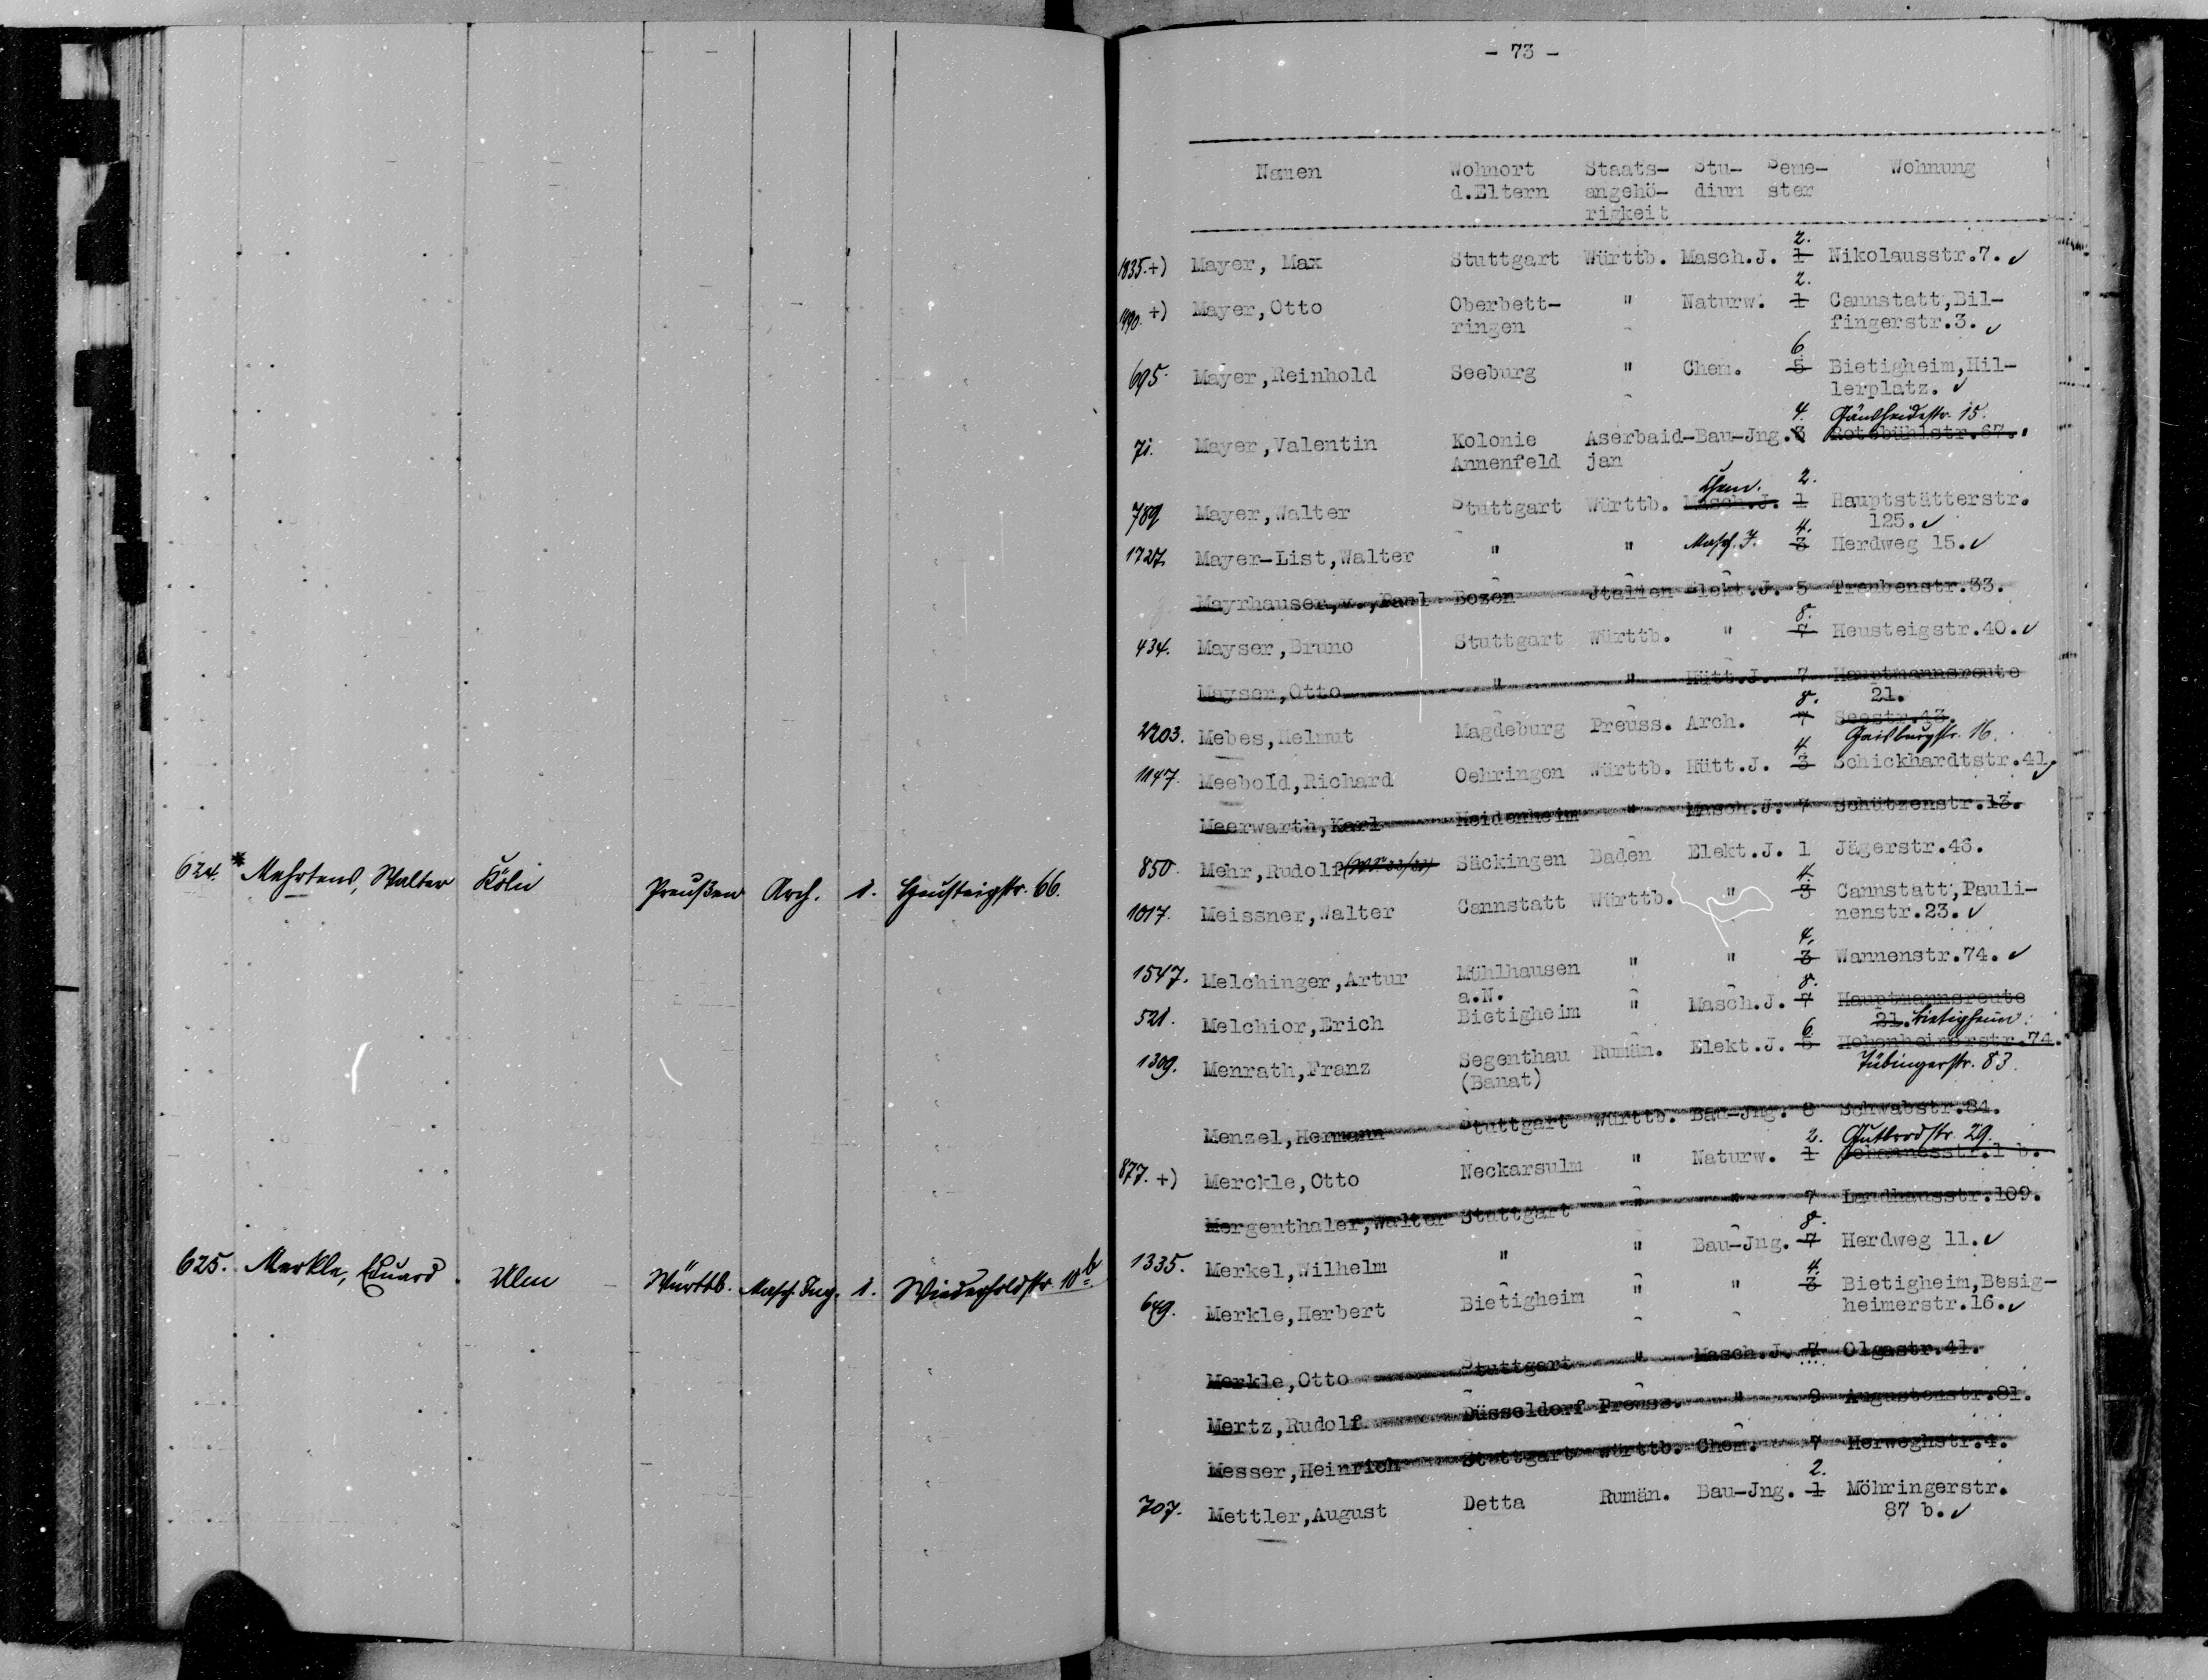 624.* Mehrtens, Walter Köln Preußen Arch. 1. Heusteigstr. 66.
625. Merkle, Eduard Ulm Württb. Masch. Ing. 1. Wiederholdstr. 10 b
- 73 -
Namen Wohnort Staats- Stu- Seme- Wohnung
d.Eltern angehö- dium ster
rigkeit
2.
1835.+) Mayer, Max Stuttgart Württb. Masch.J. 1 Nikolausstr.7. ✓
2.
1490. +) Mayer,Otto Oberbett- " Naturw. 1 Cannstatt,Bil-
ringen fingerstr.3. ✓
6
695. Mayer,Reinhold Seeburg " Chem. 5 Bietigheim,Hil-
lerplatz. ✓
4. Gänsheidestr. 15.
71. Mayer,Valentin Kolonie Aserbaid-Bau-Jng.3 Rotebühlstr.67.
Annenfeld jan
Chem. 2.
789 Mayer,Walter Stuttgart Württb. Masch.J. 1 Hauptstätterstr.
125. ✓
4.
1727. Mayer-List,Walter " " Masch. J. 3 Herdweg 15. ✓
Mayrhauser,v.,Paul Bozen Jtalien Elekt.J. 5 Traubenstr.33.
8.
434. Mayser,Bruno Stuttgart Württb. " 7 Heusteigstr.40. ✓
Mayser,Otto " " Hütt.J. 7 Hauptmannsreute
21.
8.
2203. Mebes,Helmut Magdeburg Preuss. Arch. 7 Seestr.43.
Gaisburgstr. 16.
4.
1147. Meebold,Richard Oehringen Württb. Hütt.J. 3 Schickhardtstr.41. ✓
Meerwarth,Karl Heidenheim " Masch.J. 7 Schützenstr.13.
850. Mehr,Rudolf Säckingen Baden Elekt.J. 1 Jägerstr.46.
4.
1017. Meissner,Walter Cannstatt Württb. " 3 Cannstatt,Pauli-
nenstr.23. ✓
4.
1547. Melchinger,Artur Mühlhausen " " 3 Wannenstr.74. ✓
a.N.
8.
521. Melchior,Erich Bietigheim " Masch.J. 7 Hauptmannsreute
21. Bietigheim.
6.
1309. Menrath,Franz Segenthau Rumän. Elekt.J. 5 Hohenheimerstr.74.
(Banat) Tübingerstr. 83.
Menzel,Hermann Stuttgart Württb. Bau-Jng. 8 Schwabstr.84.
2. Gutbrodstr. 29.
877. +) Merckle,Otto Neckarsulm " Naturw. 1 Johannesstr.1 b.
Mergenthaler,Walter Stuttgart " " 7 Landhausstr.109.
8.
1335. Merkel,Wilhelm " " Bau-Jng. 7 Herdweg 11. ✓
4.
649. Merkle,Herbert Bietigheim " " 3 Bietigheim,Besig-
heimerstr.16. ✓
Merkle,Otto Stuttgart " Masch.J. 7 Olgastr.41.
Mertz,Rudolf Düsseldorf Preuss. " 9 Augustenstr.81.
Messer,Heinrich Stuttgart Württb. Chem. 7 Herweghstr.4.
2.
707. Mettler,August Detta Rumän. Bau-Jng. 1 Möhringerstr.
87 b. ✓